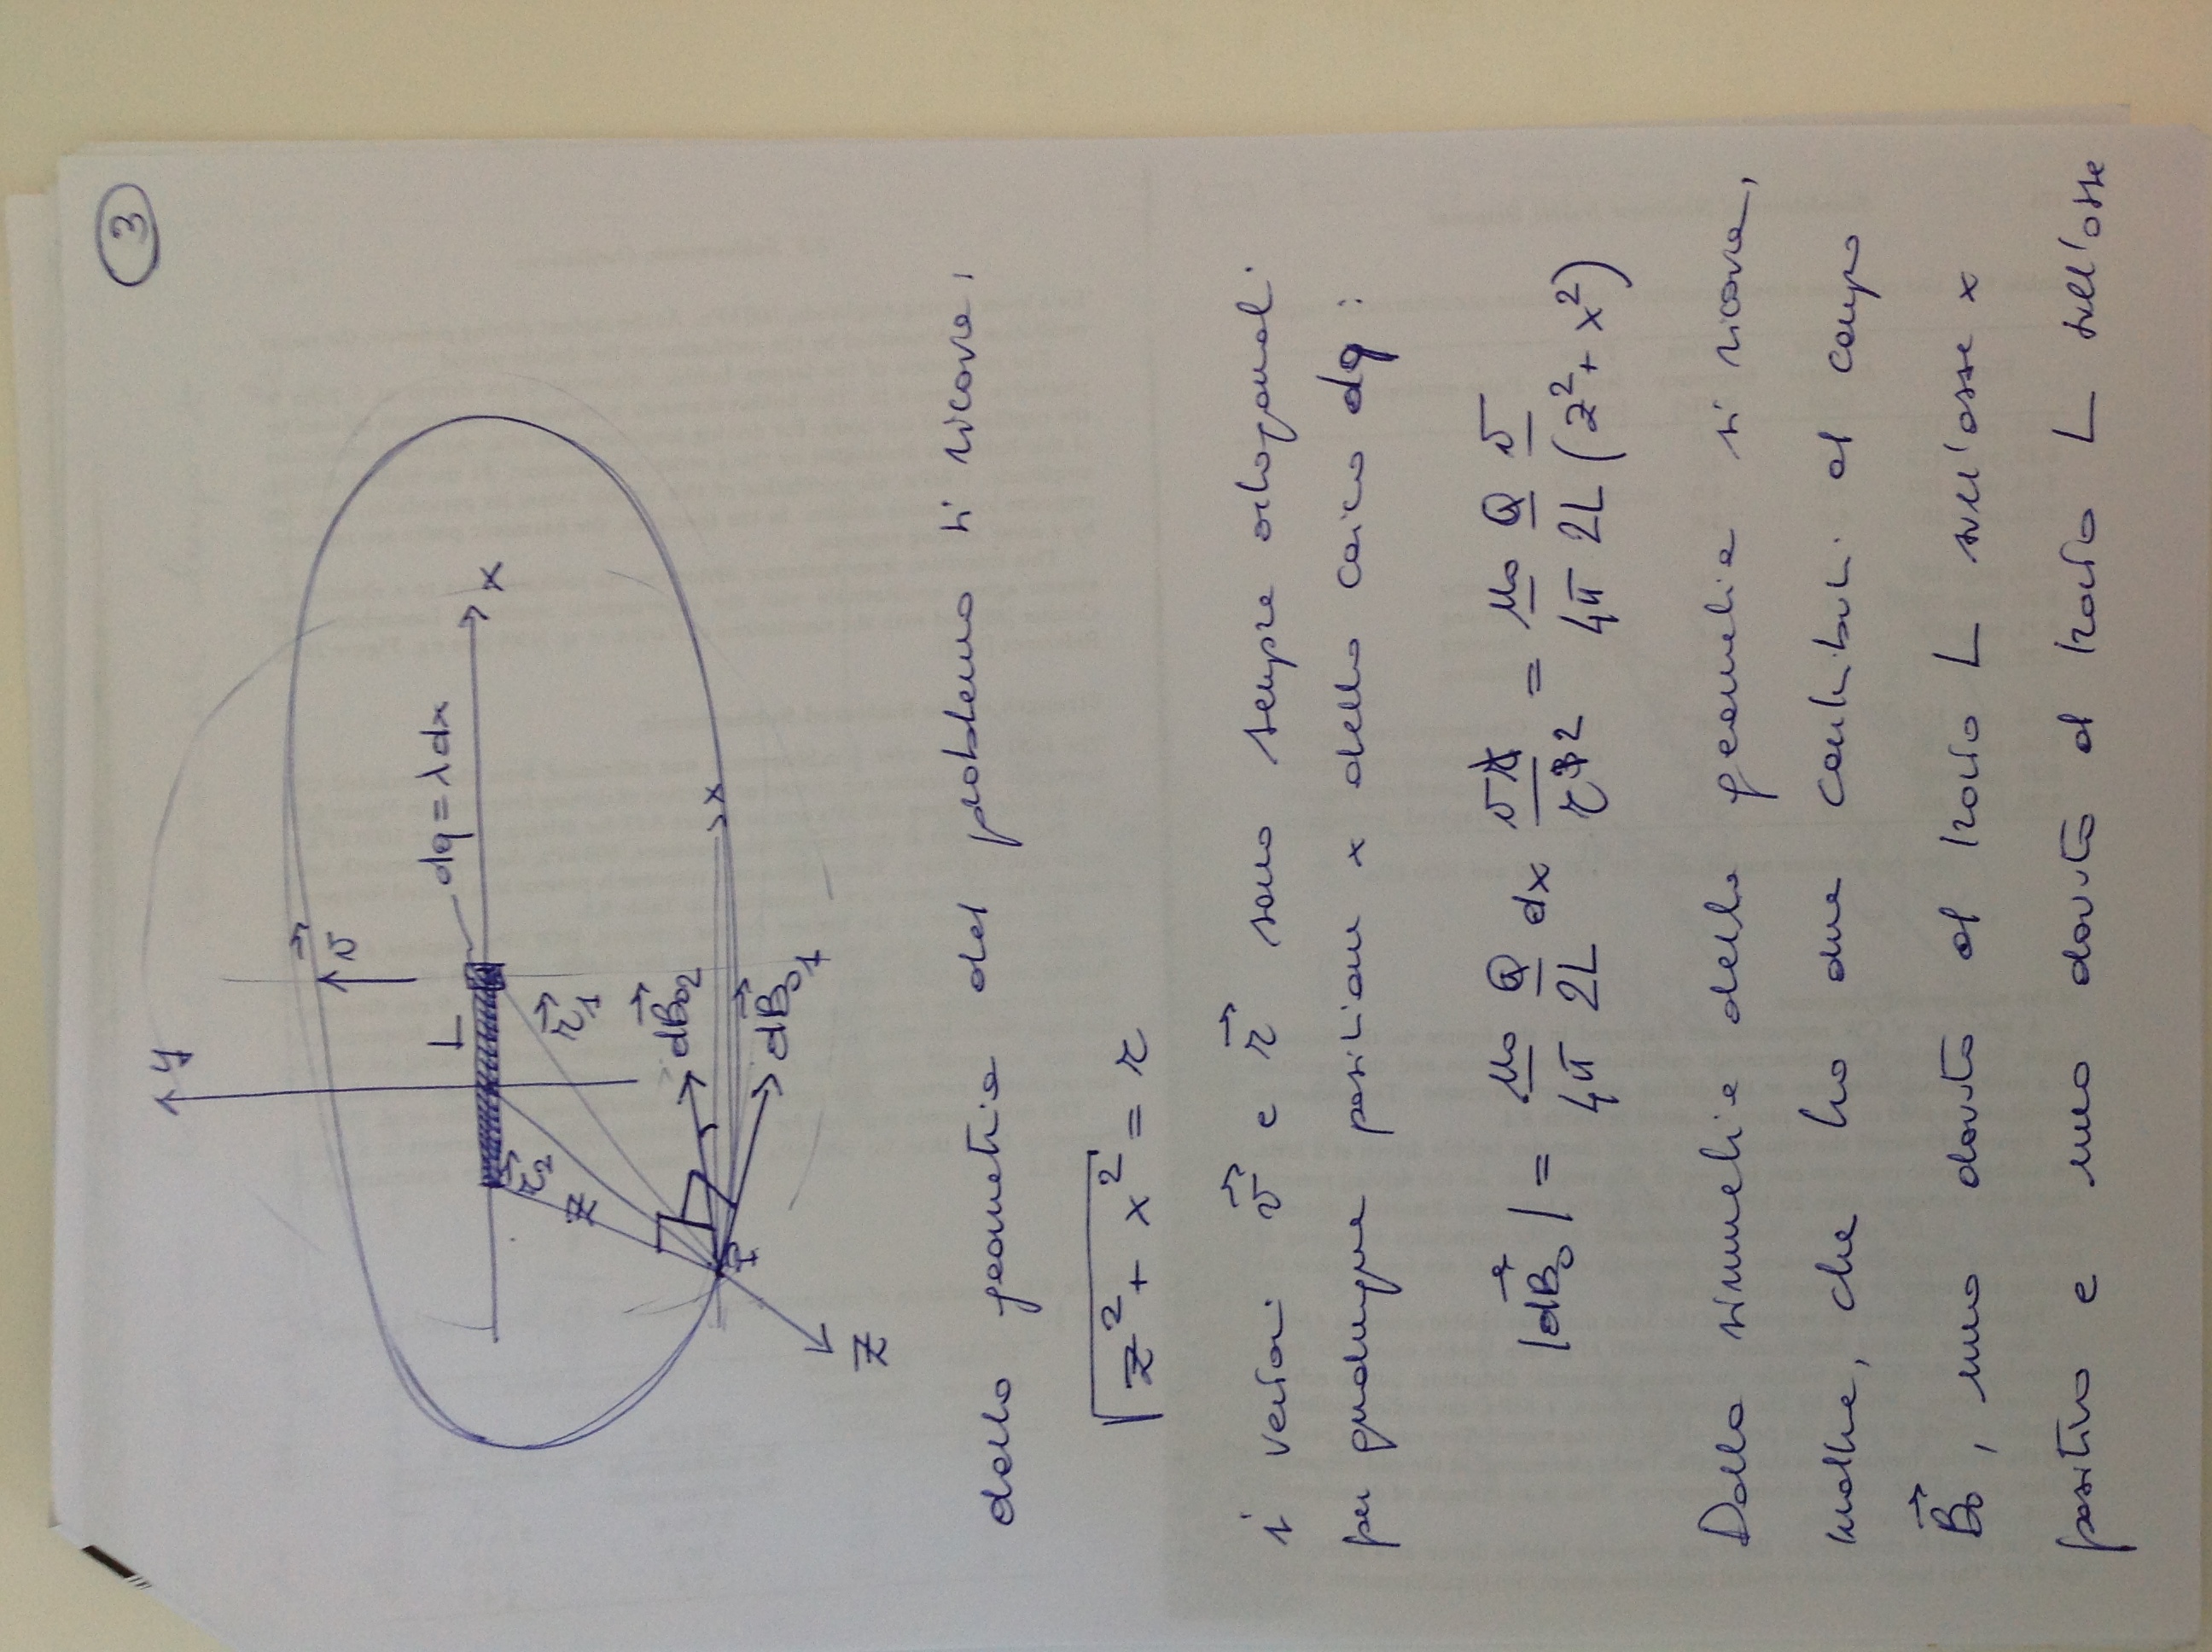 3
y
v⃗
L
dq = λ dx
x
r⃗₂
r⃗₁
z
dB⃗₀₂
x
P
dB⃗₀₁
z
dalla geometria del problema si ricava,
√(z² + x²) = r
i vettori v⃗ e r⃗ sono sempre ortogonali
per qualunque posizione x della carica dq :
|dB⃗₀| = μ₀/4π Q/2L dx v r/r³ ² = μ₀/4π Q/2L v/(z² + x²)
Dalla simmetria della geometria si ricava,
inoltre, che ho due contributi al campo
B⃗₀, uno dovuto al tratto L sull'asse x
positivo e uno dovuto al tratto L sull'asse